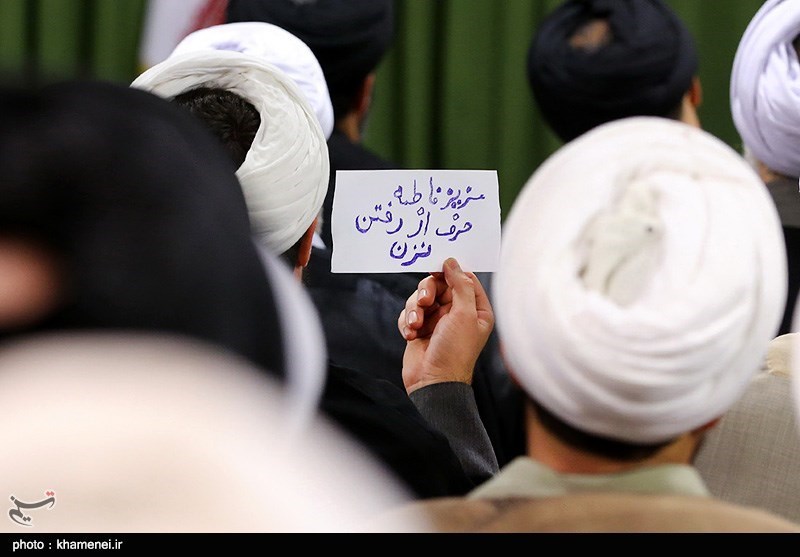 عزیز فاطمه
حرف از رفتن
نزن
تسنیم
photo : khamenei.ir